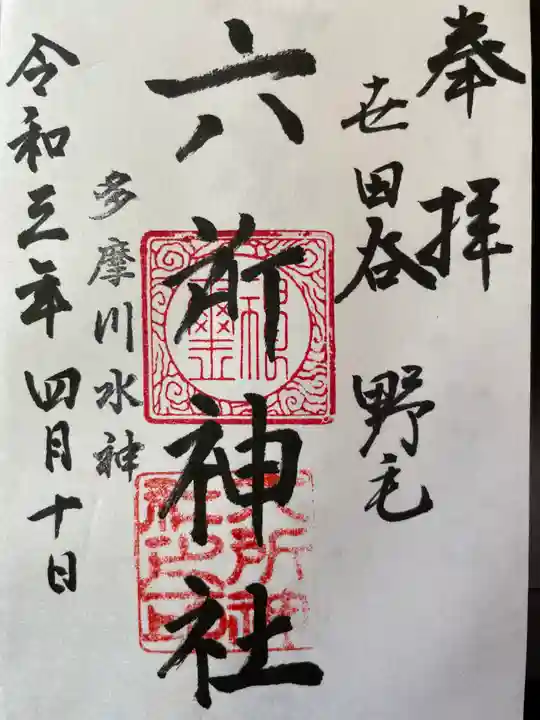 奉拝
世田谷 野毛
六所神社
多摩川水神
令和三年四月十日
神璽
六所神社之印